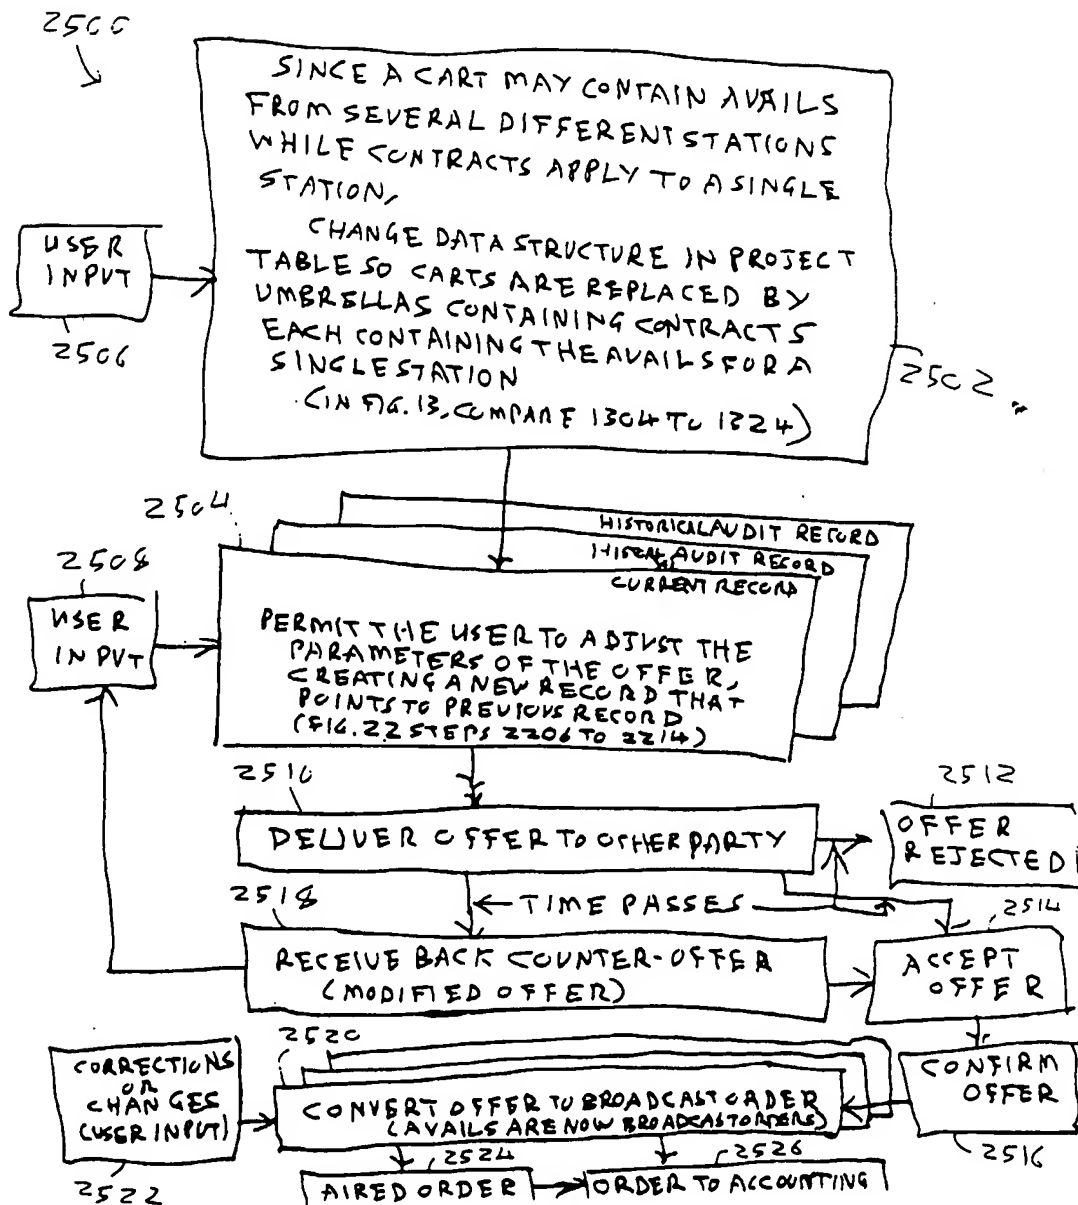 2500
SINCE A CART MAY CONTAIN AVAILS
FROM SEVERAL DIFFERENT STATIONS
WHILE CONTRACTS APPLY TO A SINGLE
STATION,
CHANGE DATA STRUCTURE IN PROJECT
TABLE SO CARTS ARE REPLACED BY
UMBRELLAS CONTAINING CONTRACTS
EACH CONTAINING THE AVAILS FOR A
SINGLE STATION
(IN FIG. 13, COMPARE 1304 TO 1324)
USER
INPUT
2506
2502
2504
HISTORICAL AUDIT RECORD
AUDIT RECORD
CURRENT RECORD
2508
USER
INPUT
PERMIT THE USER TO ADJUST THE
PARAMETERS OF THE OFFER,
CREATING A NEW RECORD THAT
POINTS TO PREVIOUS RECORD
(FIG. 22 STEPS 2206 TO 2214)
2510
2512
DELIVER OFFER TO OTHER PARTY
OFFER
REJECTED
2518
TIME PASSES
2514
RECEIVE BACK COUNTER-OFFER
(MODIFIED OFFER)
ACCEPT
OFFER
2520
CORRECTIONS
OR
CHANGES
(USER INPUT)
CONVERT OFFER TO BROADCAST ORDER
(AVAILS ARE NOW BROADCAST ORDERS)
CONFIRM
OFFER
2522
2524
2526
2516
AIRED ORDER
ORDER TO ACCOUNTING